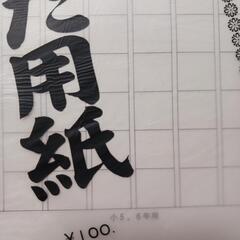 た用紙
小5、6年用
¥100.